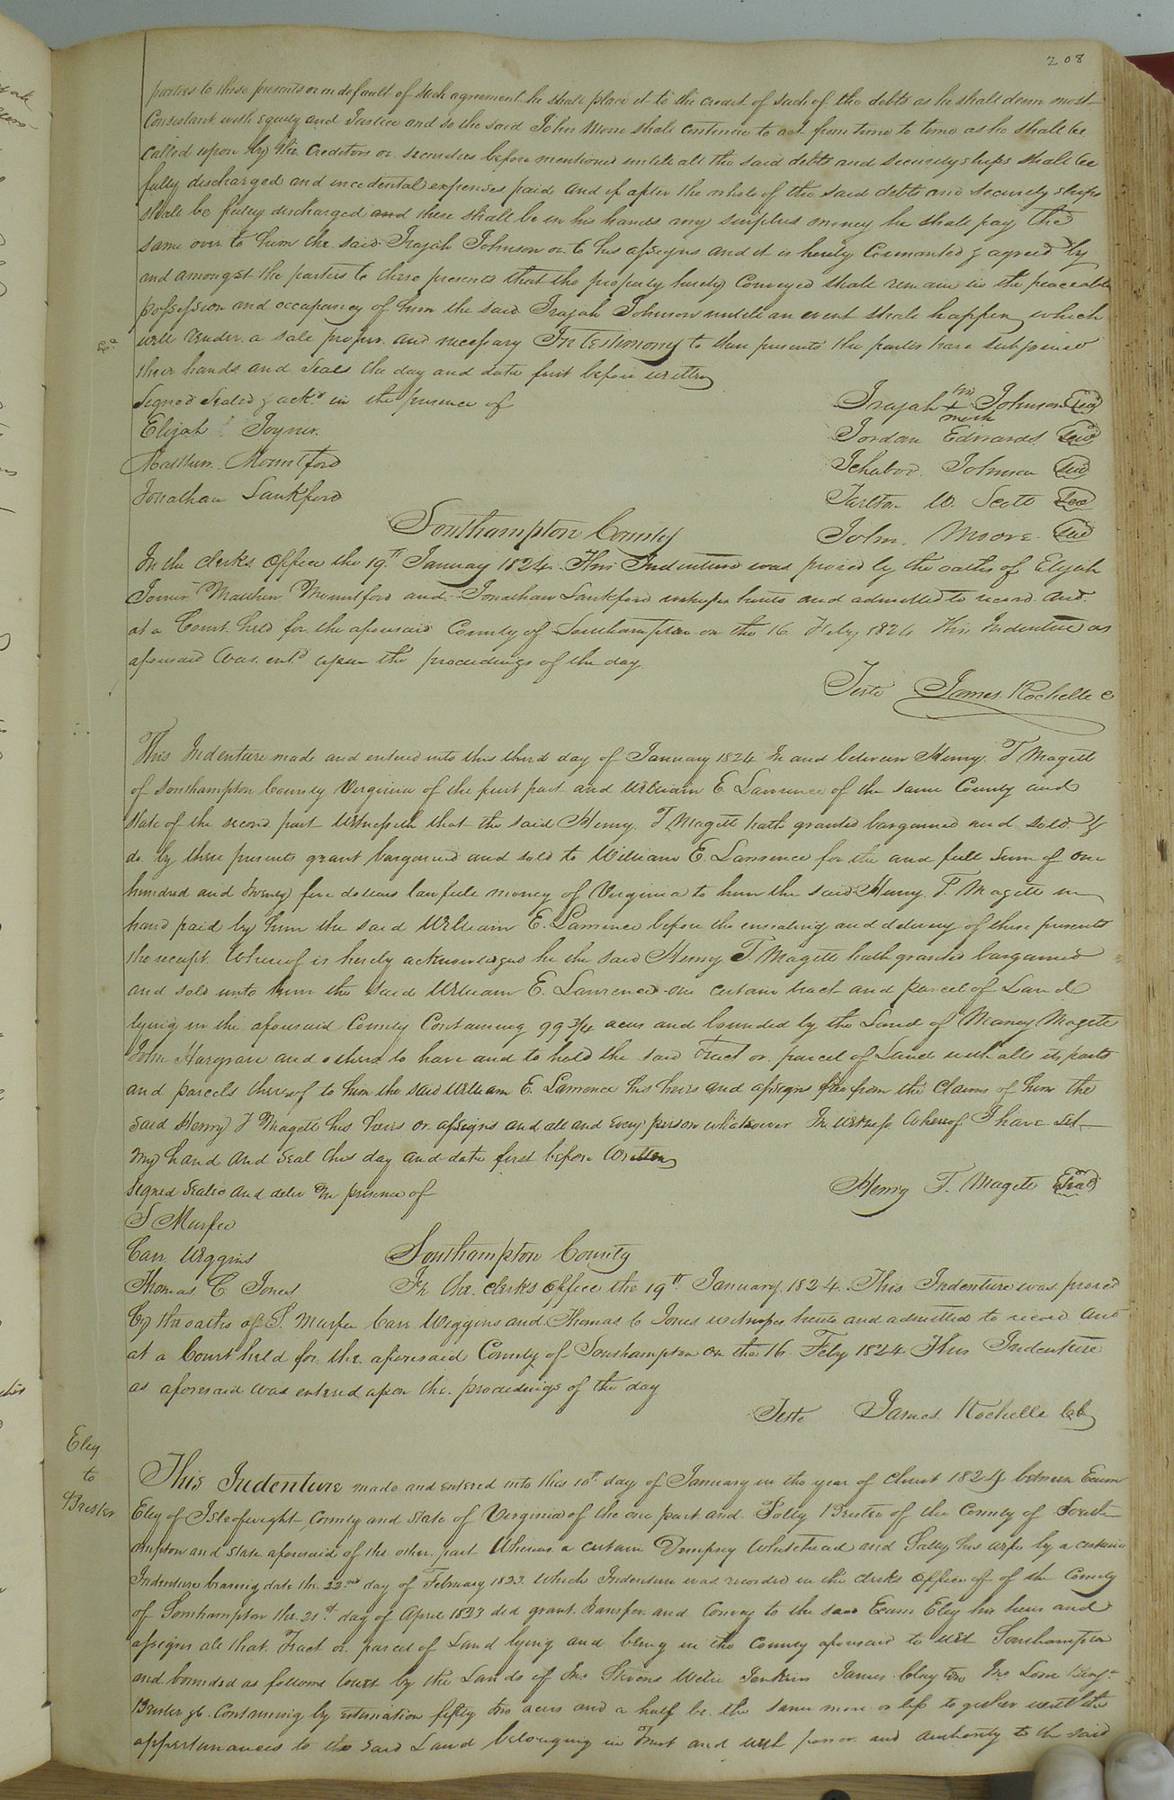 208
parties to these presents or in default of such agreement he shall place it to the credit of such of the debts as he shall deem most
Consistant with equity and Justice and so the said John Moore shall continue to act from time to time as he shall be
called upon by the Creditors or securities before mentioned untill all the said debts and securityships shall be
fully discharged and incedental expenses paid and if after the whole of the said debts and security ships
shall be fully discharged and there shall be in his hands any surplus money he shall pay the
same over to him the said Irajah Johnson or to his assigns and it is hereby Covenanted & agreed by
and amongst the parties to these presents that the property hereby Conveyed shall remain in the peaceable
possession and occupancy of him the said Irajah Johnson untill an event shall happen which
will render a sale proper and necessary In testimony to these presents the parties have subscribed
their hands and seals the day and date first before written
Signed Sealed & ackd in the presence of
Irajah his + mark Johnson Seal
Elijah Joyner
Jordan Edwards Seal
Matthew Mountford
Ichabod Johnson Seal
Jonathan Lankford
Tarlton W. Scott Seal
Southampton County
John Moore Seal
In the clerks office the 19th January 1824 This Indenture was proved by the oaths of Elijah
Joiner Matthew Mountford and Jonathan Lankford witnesses hereto and admitted to record And
at a Court held for the aforesaid County of Southampton on the 16 Feby 1824 This Indenture as
aforesaid was entd upon the proceedings of the day
Teste James Rochelle C
This Indenture made and entered into this third day of January 1824 In and between Henry T Magett
of Southampton County Virginia of the first part and William E Lawrence of the same County and
State of the second part Witnesseth that the said Henry T Magett hath granted bargained and sold &
do by these presents grant bargained and sold to William E. Lawrence for the and full sum of one
hundred and twenty five dollars lawfull money of Virginia to him the said Henry T. Magett in
hand paid by him the said William E. Lawrence before the ensealing and delivery of these presents
the receipt Whereof is hereby acknowledged he the said Henry T Magett hath granted bargained
and sold unto him the said William E. Lawrence one certain tract and parcel of Land
lying in the aforesaid County Containing 99 3/4 acres and bounded by the Land of Nancy Magett
John Hargrave and others to have and to hold the said Tract or parcel of Land with alls its parts
and parcels thereof to him the said William E. Lawrence his heirs and assigns free from the Claims of him the
said Henry T Magett his heirs or assigns and all and every person whatsoever In witness Whereof I have set
my hand and Seal this day and date first before Written
Signed Sealed and deliv In presence of
Henry T. Magett Seal
S Murfee
Carr Wiggins
Southampton County
Thomas C Jones
In the clerks office the 19th January 1824. This Indenture was proved
by the oaths of S. Murfee Carr Wiggins and Thomas C Jones witnesses hereto and admitted to record And
at a Court held for the aforesaid County of Southampton on the 16 Feby 1824 This Indenture
as aforesaid was entered upon the proceedings of the day
Teste James Rochelle Cc
Eley
to
Brister
This Indenture made and entered into this 10th day of January in the year of Christ 1824 between Exum
Eley of Isle of wight County and State of Virginia of the one part and Polly Brister of the County of South
ampton and State aforesaid of the other part Whereas a certain Dempsey Whitehead and Sally his wife by a certain
Indenture bearing date the 22nd day of February 1823 Which Indenture was recorded in the clerks office of of the County
of Southampton the 21st day of April 1823 did grant transfer and Convey to the said Exum Eley his heirs and
assigns all that Tract or parcel of Land lying and being in the County aforesaid to wit Southampton
and bounded as follows towit by the Lands of Jno Stevens Willie Jenkins James Clayton Jno
Brister &c Containing by estimation fifty two acres and a half be the same more or less to gether with the
appertunances to the said Land belonging in Trust and with power and authority to the said